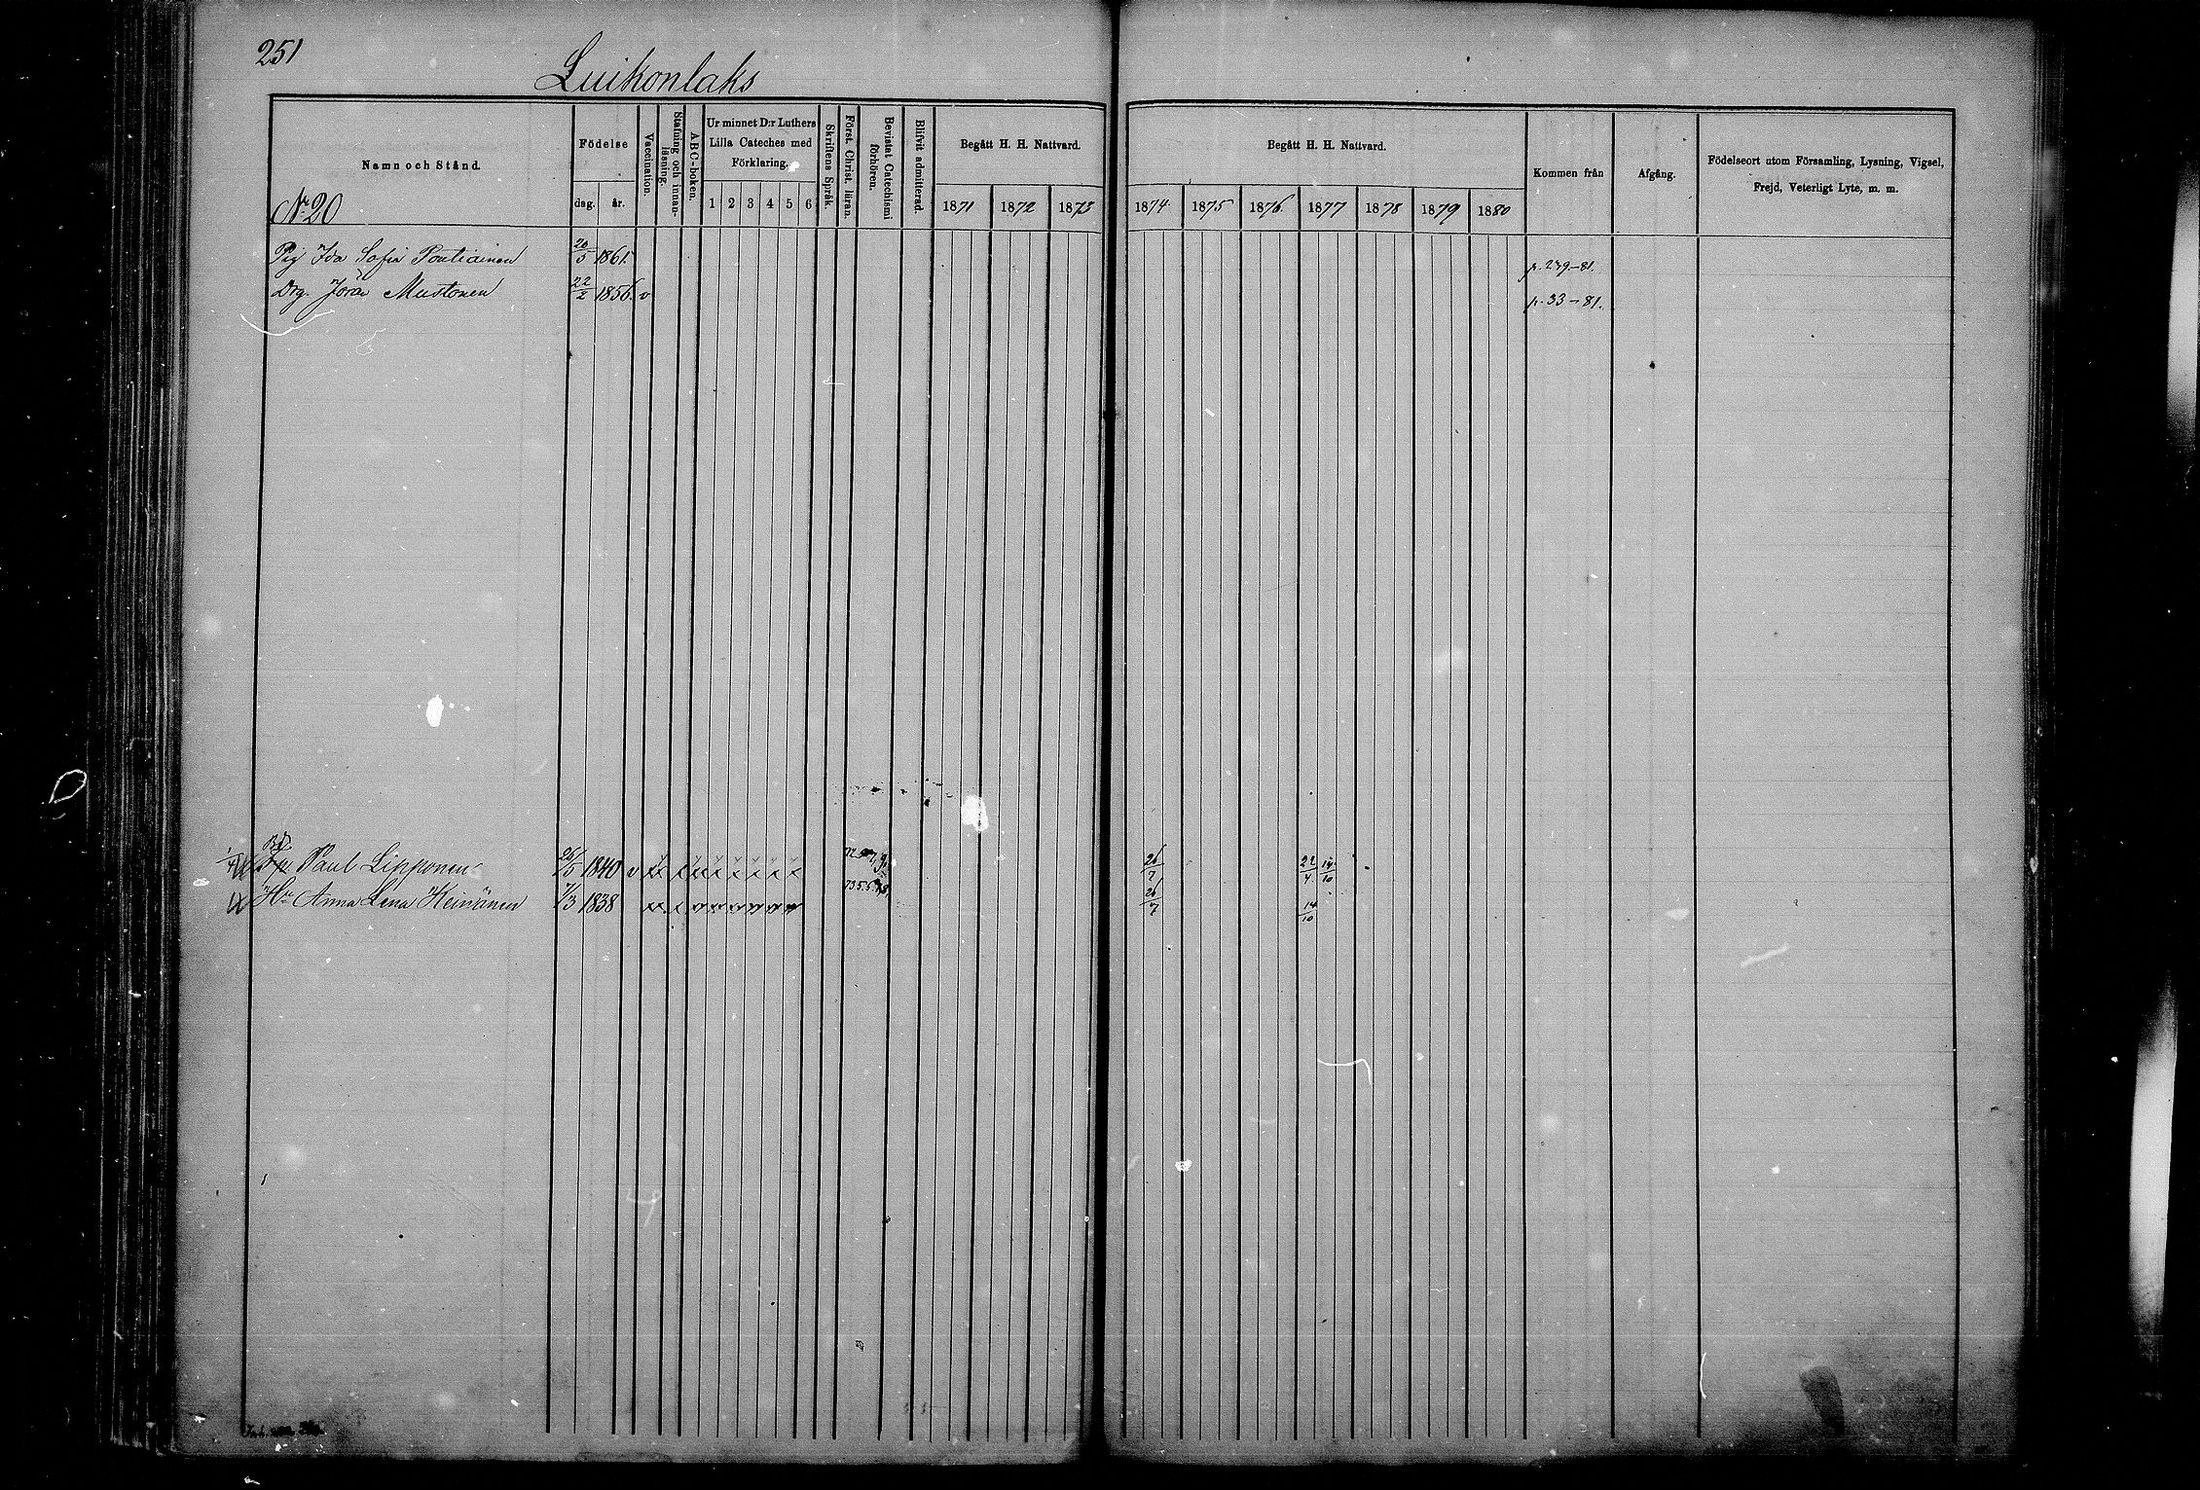 251
Luikonlaks
Namn och Stånd.
Födelse
dag. år.
Vaccination.
Stafning och innanläsning.
ABC-boken.
Ur minnet D:r Luthers
Lilla Cateches med
Förklaring.
1 2 3 4 5 6
Skriftens Språk.
Först. Christ. läran.
Bevistat Catechismi förhören.
Blifvit admitterad.
Begått H. H. Nattvard.
1871 1872 1873
Begått H. H. Nattvard.
1874 1875 1876 1877 1878 1879 1880
Kommen från
Afgång.
Födelseort utom Församling, Lysning, Vigsel,
Frejd, Veterligt Lyte, m. m.
No 20
Pig Ida Sofia Pontiainen 20/5 1861 p. 239-81.
Drg. Jöran Mustonen 22/2 1856. v p. 33-81.
Paul Lipponen 26/5 1840 v 26/7 22/4 14/10
Hu Anna Lena Keinänen 7/3 1838 26/7 14/10